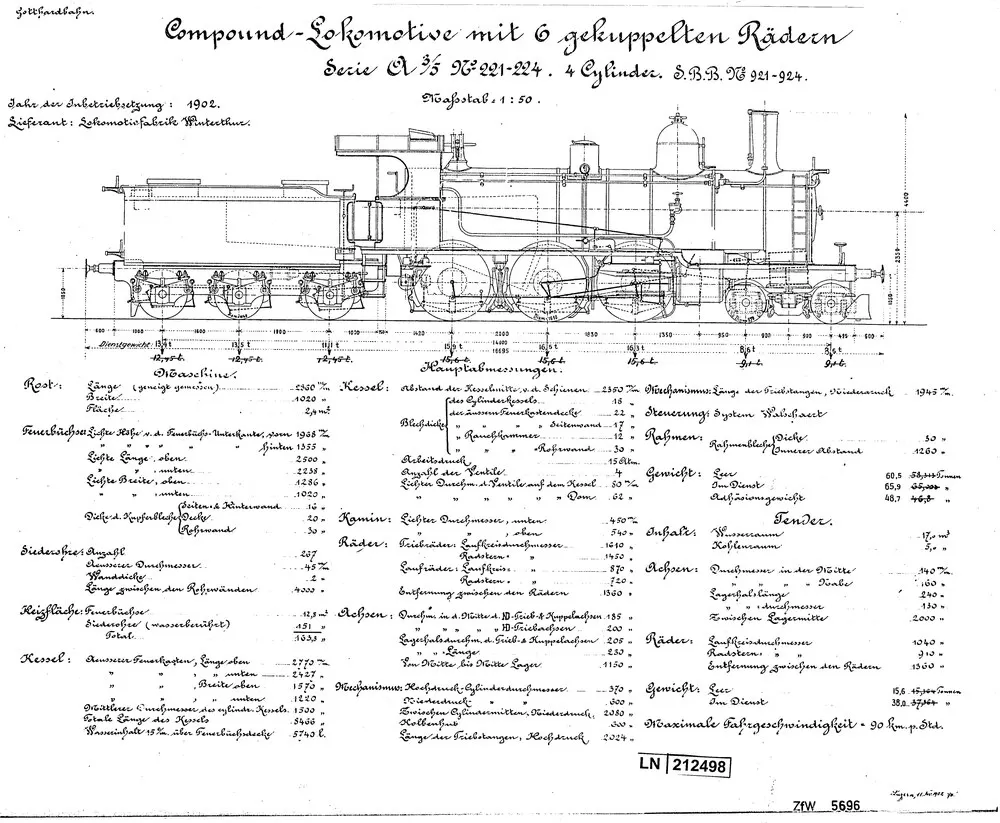 Gotthardbahn.
Compound-Lokomotive mit 6 gekuppelten Rädern
Serie A 3/5 No 221-224. 4 Cylinder. S.B.B. No 921-924.
Maßstab = 1:50.
Jahr der Inbetriebsetzung: 1902.
Lieferant: Lokomotivfabrik Winterthur.
4400
2350
1050
600 1000 1600 1800
2000 1650
14400
16695
Dienstgewicht: 13,4 t 13,5 t 11,1 t 15,9 t 16,5 t 16,3 t 8,6 t 8,6 t
12,45 t. 12,45 t. 12,45 t. 15,6 t. 15,6 t. 15,6 t. 9,1 t. 9,1 t.
Maschine.
Hauptabmessungen.
Rost: Länge (geneigt gemessen) 2360 m/m
Breite 1020 "
Fläche 2,4 m²
Feuerbüchse: Lichte Höhe v. d. Feuerbüchs-Unterkante, vorn 1968 m/m
" " " " hinten 1355 "
Lichte Länge, oben 2500 "
" " , unten 2238 "
Lichte Breite, oben 1286 "
" " , unten 1020 "
Dicke d. Kupferbleche Seiten- & Hinterwand 16 "
Decke 20 "
Rohrwand 30 "
Siederohre: Anzahl 267
Aeusserer Durchmesser 45 m/m
Wanddicke 2 "
Länge zwischen den Rohrwänden 4000 "
Heizfläche: Feuerbüchse 12,3 m²
Siederohre (wasserberührt) 151 "
Total 163,3 "
Kessel: Aeusserer Feuerkasten, Länge oben 2770 m/m
" " , " unten 2427 "
" " , Breite oben 1570 "
" " , " unten 1220 "
Mittlerer Durchmesser des cylindr. Kessels 1500 "
Totale Länge des Kessels 8466 "
Wasserinhalt 15 c/m über Feuerbüchsdecke 5740 l.
Kessel: Abstand der Kesselmitte v. d. Schienen 2350 m/m
Blechdicke des Cylinderkessels 18 "
der äussern Feuerkastendecke 22 "
" " " Seitenwand 17 "
" Rauchkammer 12 "
" " Rohrwand 30 "
Arbeitsdruck 15 Atm.
Anzahl der Ventile 4
Lichter Durchm. d. Ventile auf dem Kessel 80 m/m
" " " " " Dom 62 "
Kamin: Lichter Durchmesser, unten 450 m/m
" " , oben 540 "
Räder: Triebräder: Laufkreisdurchmesser 1610 "
Radstern " 1450 "
Laufräder: Laufkreis " 870 "
Radstern " 720 "
Entfernung zwischen den Rädern 1360 "
Achsen: Durchm. in d. Mitte d. HD-Trieb- & Kuppelachsen 185 "
" " " " ND-Triebachsen 200 "
Lagerhalsdurchm. d. Trieb- & Kuppelachsen 205 "
" " Länge 230 "
Von Mitte bis Mitte Lager 1150 "
Mechanismus: Hochdruck-Cylinderdurchmesser 370 "
Niederdruck- " 600 "
Zwischen Cylindermitten, Niederdruck 2080 "
Kolbenhub 600 "
Länge der Triebstangen, Hochdruck 2024 "
Mechanismus: Länge der Triebstangen, Niederdruck 1945 m/m
Steuerung: System Walschaert
Rahmen: Rahmenbleche Dicke 30 "
Innerer Abstand 1260 "
Gewicht: Leer 60,5 Tonnen
Im Dienst 65,9 65,000 "
Adhäsionsgewicht 48,7 46,8 "
Tender.
Inhalt: Wasserraum 17,0 m³
Kohlenraum 5,0 "
Achsen: Durchmesser in der Mitte 140 m/m
" " " Nabe 160 "
Lagerhalslänge 240 "
" " durchmesser 130 "
Zwischen Lagermitte 2000 "
Räder: Laufkreisdurchmesser 1040 "
Radstern " " 910 "
Entfernung zwischen den Rädern 1360 "
Gewicht: Leer 15,6 Tonnen
Im Dienst 38,0 "
Maximale Fahrgeschwindigkeit = 90 km. p. Std.
LN 212498
ZfW 5696